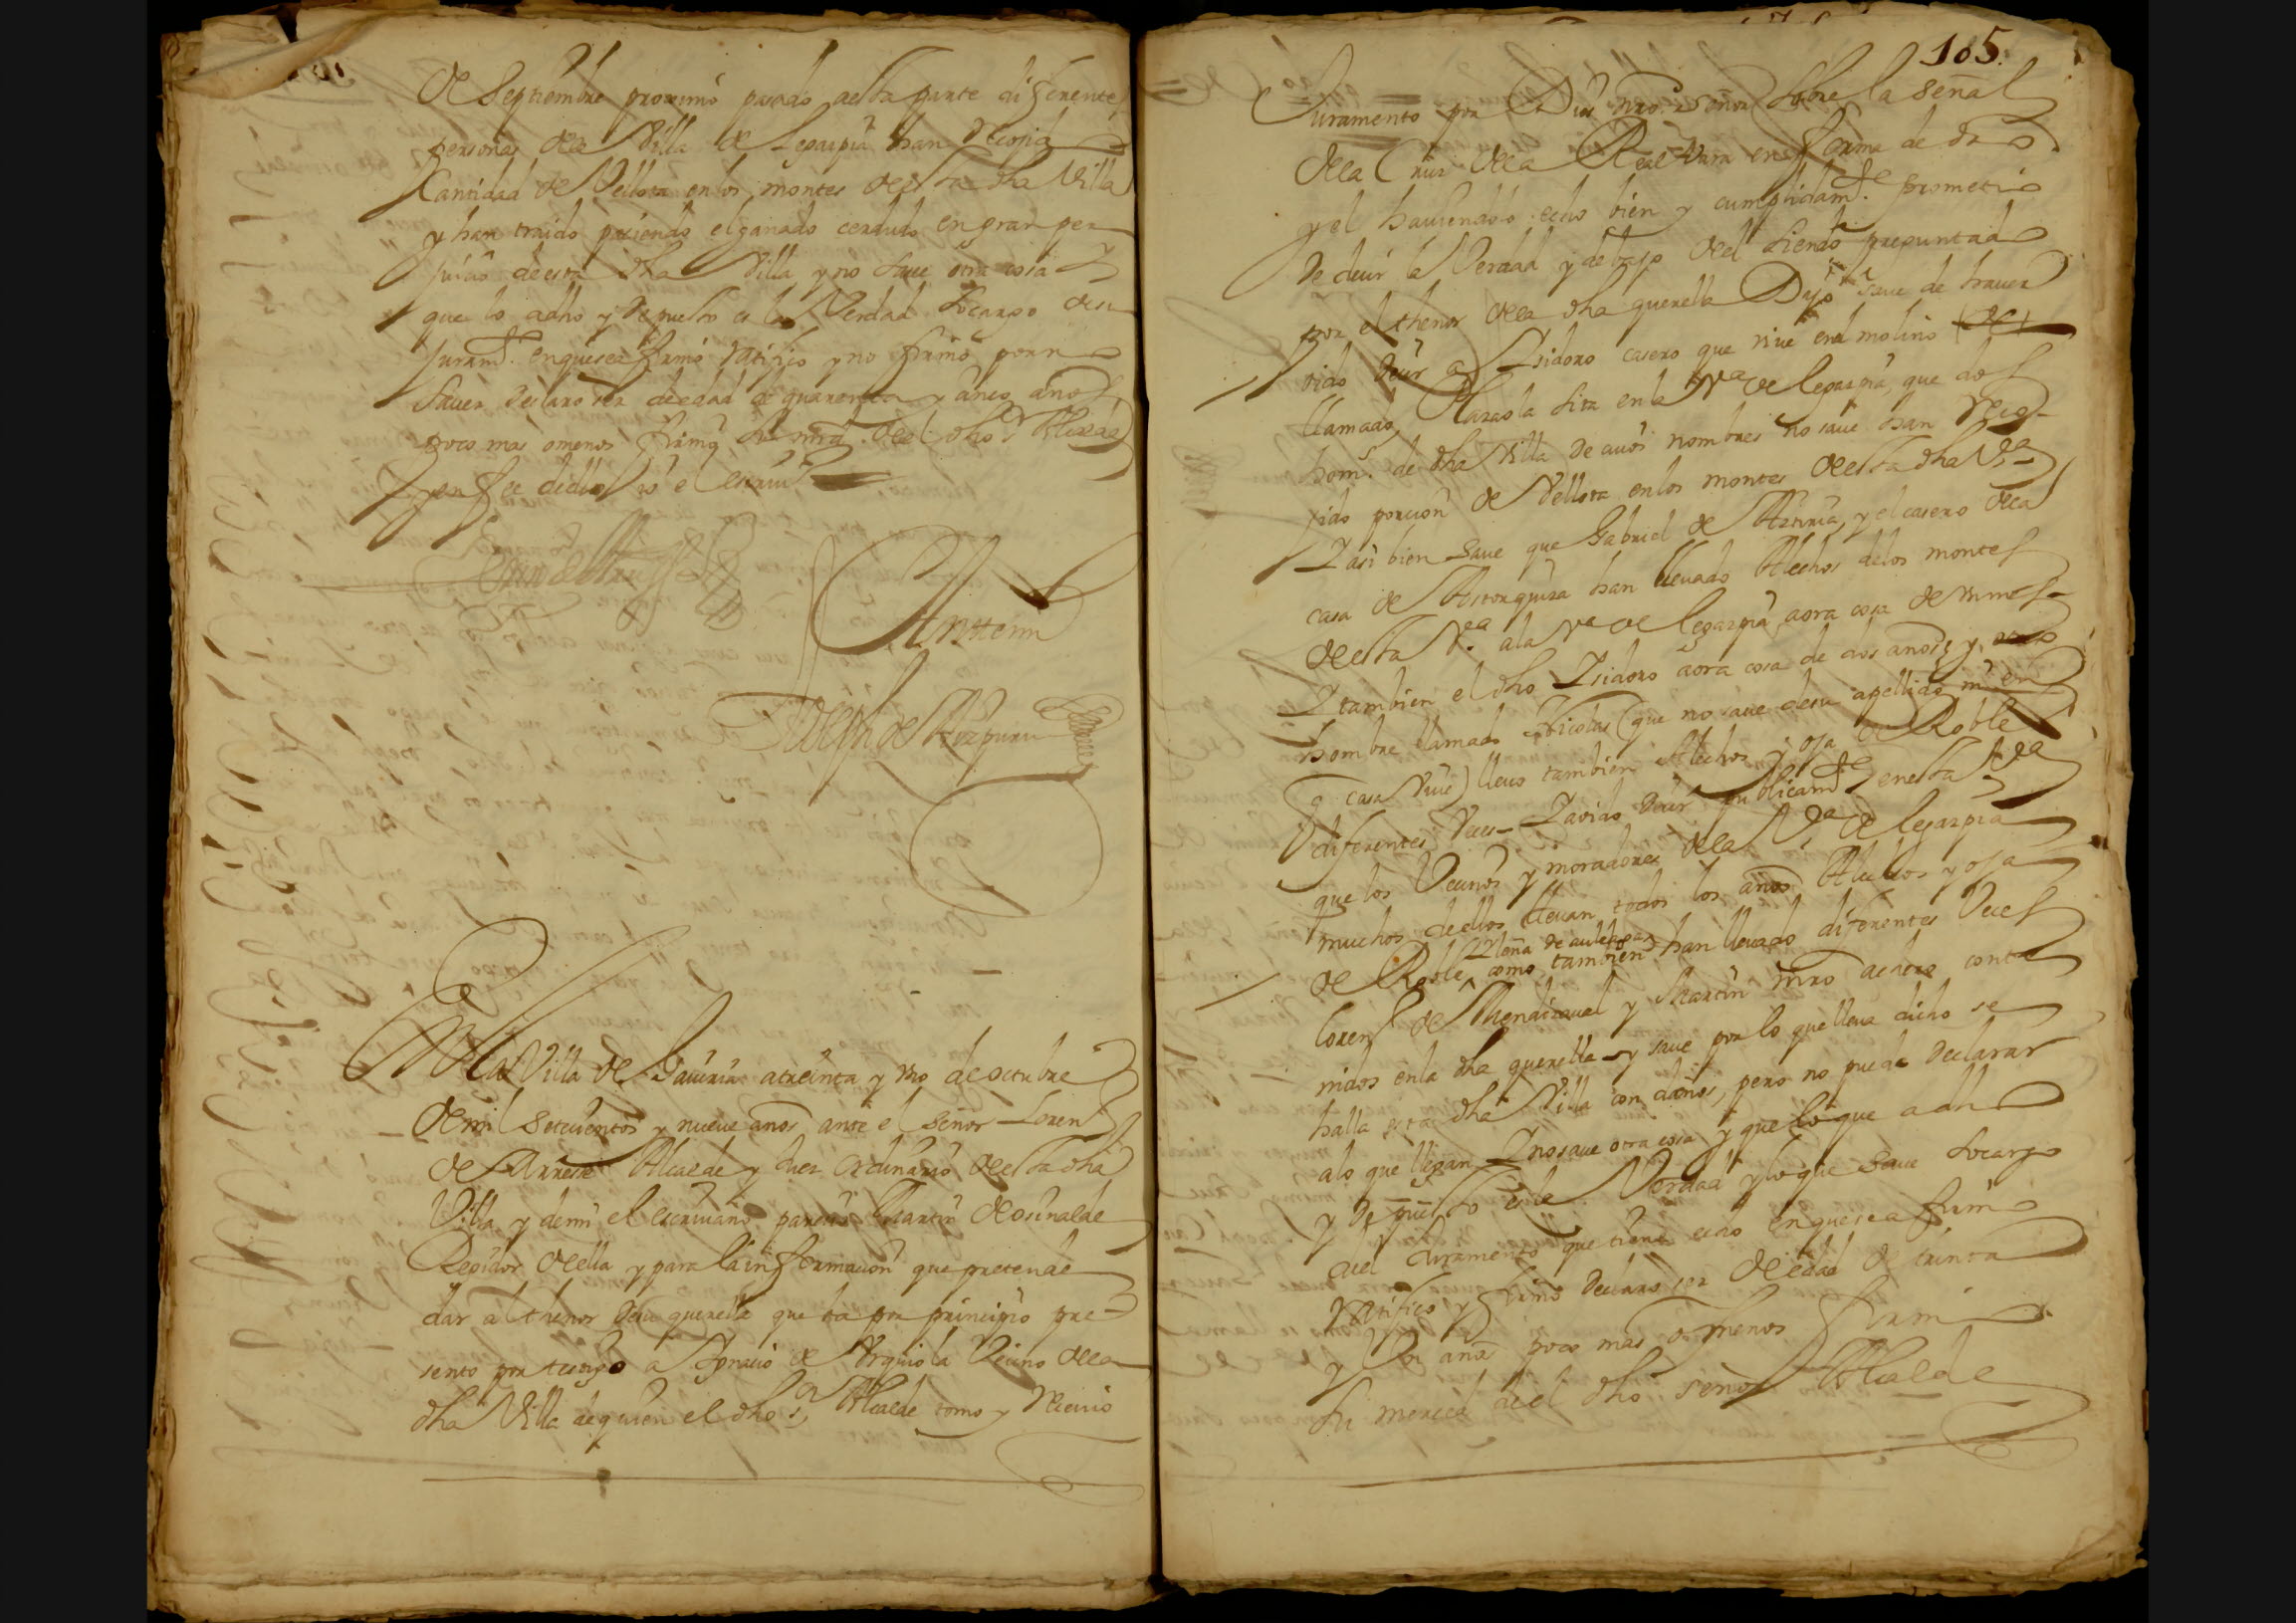 de Septiembre proximo pasado a esta parte diferentes
personas de la Villa de Legazpia han recogido
Cantidad de Vellota en los montes desta dha Villa
y han traido paciendo el ganado cerduno en gran per
juicio de esta dha Villa y no save otra cosa y
que lo adho y depuesto es la Verdad so cargo de su
juramto en que se afirmo ratifico y no firmo por no
saver declaro ser de edad de quarenta y cinco años
poco mas o menos firmo su mrd del dho sr Alcalde
y en fee dello yo el escrivo
Ante mi
Joseph de Aizpuru
En la Villa de Gaviria a treinta y uno de octubre
de mil setecientos y nueve años ante el señor Lorenzo
de Arrese Alcalde y Juez ordinario desta dha
Villa y de mi el escrivano parecio Martin de osinalde
Regidor della y para la informacion que pretende
dar al thenor de su querella que ba por principio pre
sento por testigo a Ignacio de Arguiola Vecino de la
dha Villa de quien el dho sr Alcalde tomo y Recivio
105.
Juramento por Dios nro señor sobre la señal
de la Cruz de la Real Vara en forma de dro
y el haviendolo echo bien y cumplidamte prometio
de decir la Verdad y debajo del siendo preguntado
por el thenor de la dha querella Dijo save de haver
oido decir a Isidoro casero que vive en el molino
llamado Plazaola sita en la va de legazpia, que dos
homs de dha Villa de cuios nombres no save han recog
ido porcion de Vellota en los montes desta dha Va
I asi bien save que Gabriel de Aztiria, y el casero de la
casa de han llevado Alechos de los montes
desta Va a la va de legazpia aora cosa de un mes
I tambien el dho Isidoro aora cosa de dos años, y otro
hombre llamado Nicolas (que no save de su apellido ni en
q casa vive) llevo tambien Alechos y oja de Roble
diferentes veces I a oido decir publicamte en esta Va
que los Vecinos y moradores de la Va de legazpia
muchos dellos llevan todos los años Alechos y oja
I leña de
de Roble como tambien han llevado diferentes Veces
Lorenzo de Mendizaval y Martin conte
nidos en la dha querella y save por lo que lleva dicho se
halla esta dha Villa con daños, pero no puede declarar
a lo que llegan I no save otra cosa y que lo que a dho
y depuesto es la Verdad y lo que save so cargo
del Juramento que tiene echo en que se afirmo
ratifico y firmo declaro ser de edad de treinta
y dos años poco mas o menos firmo
su merced del dho señor Alcalde